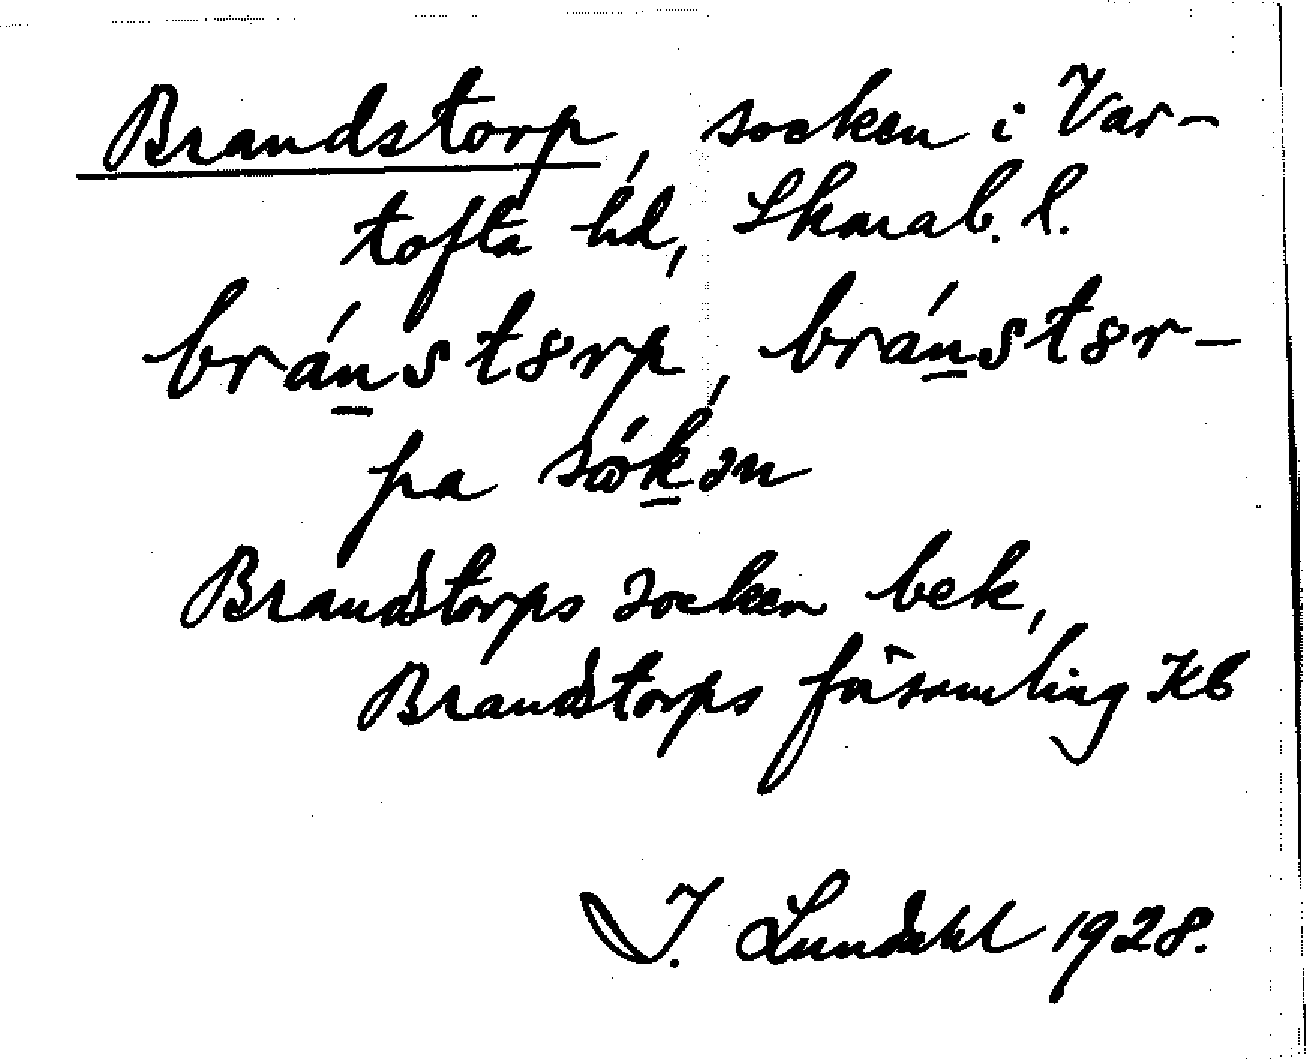 Brandstorp, socken i Var-
tofta hd, Skarab. l.
brán̲st8rp, brán̲st8r-
pa sǿk̲ən
Brandstorps socken bek,
Brandstorps församling Kb
I. Lundahl 1928.